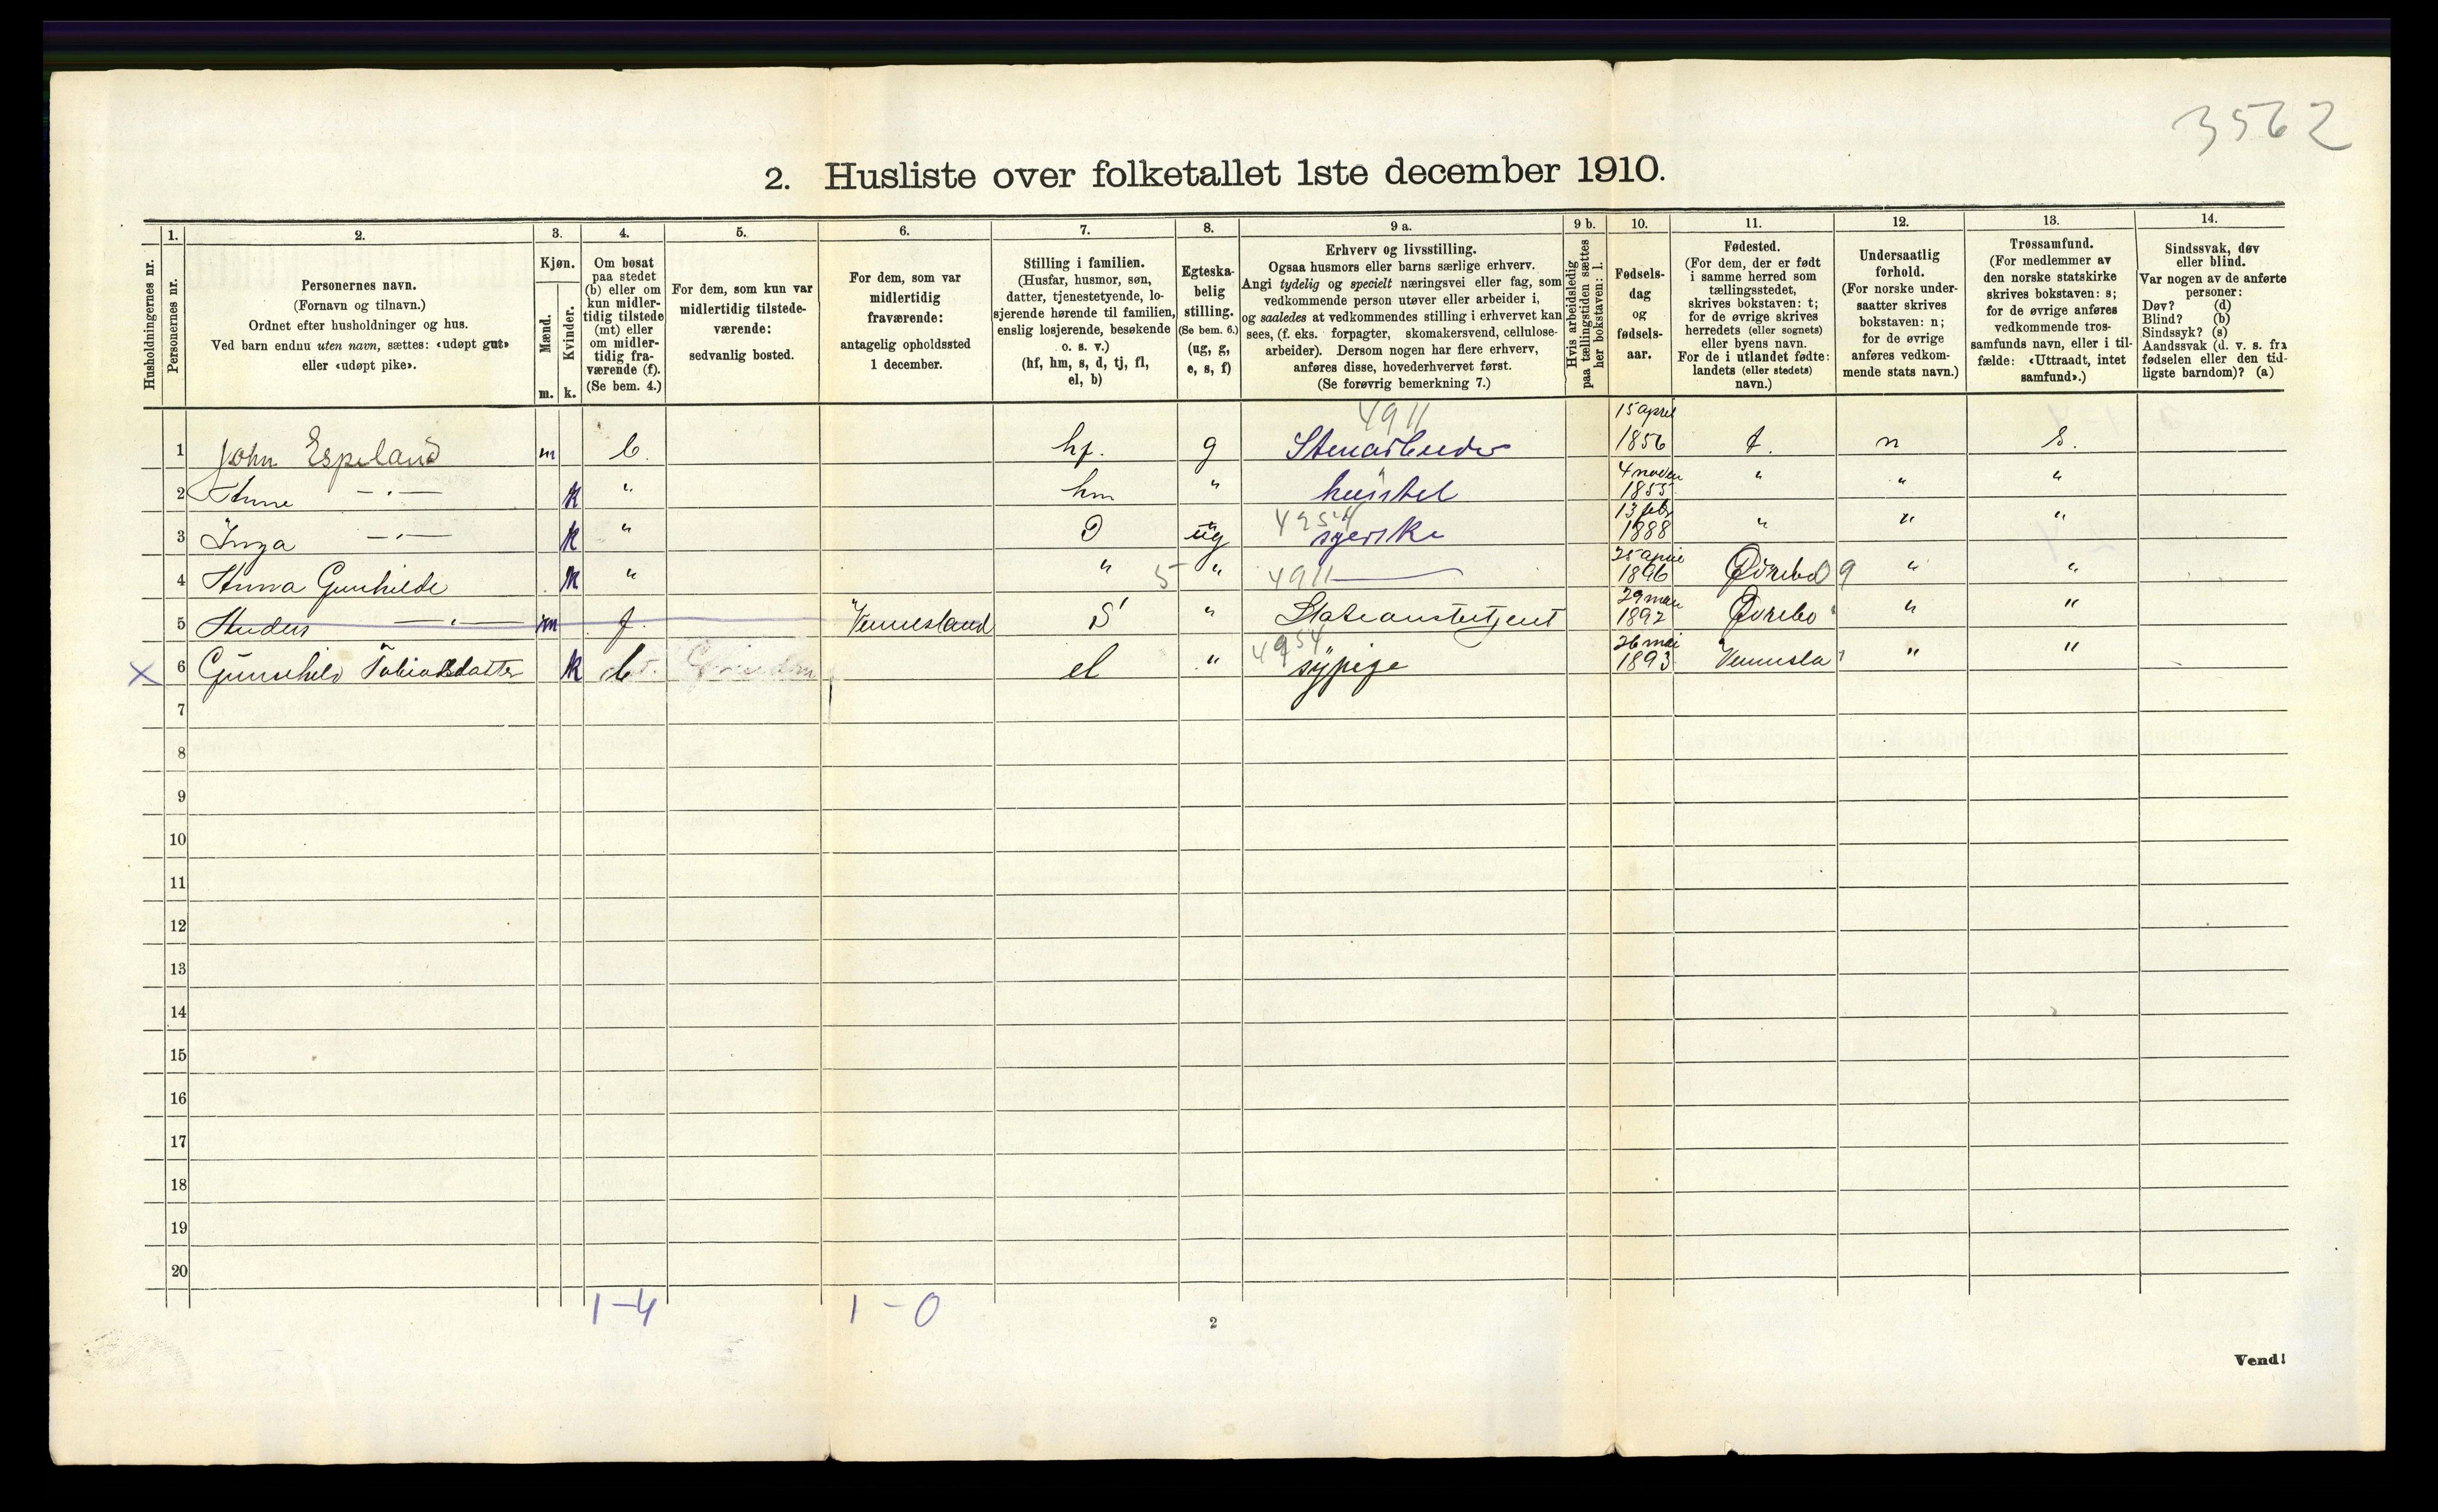 3562
2. Husliste over folketallet 1ste december 1910.
Husholdningernes nr.
1.
Personernes nr.
2.
Personernes navn.
(Fornavn og tilnavn.)
Ordnet efter husholdninger og hus.
Ved barn endnu uten navn, sættes: «udøpt gut»
eller «udøpt pike».
3.
Kjøn.
Mænd.
Kvinder.
m. k.
4.
Om bosat
paa stedet
(b) eller om
kun midler-
tidig tilstede
(mt) eller
om midler-
tidig fra-
værende (f).
(Se bem. 4.)
5.
For dem, som kun var
midlertidig tilstede-
værende:
sedvanlig bosted.
6.
For dem, som var
midlertidig
fraværende:
antagelig opholdssted
1 december.
7.
Stilling i familien.
(Husfar, husmor, søn,
datter, tjenestetyende, lo-
sjerende hørende til familien,
enslig losjerende, besøkende
o. s. v.)
(hf, hm, s, d, tj, fl,
el, b)
8.
Egteska-
belig
stilling.
(Se bem. 6.)
(ug, g,
e, s, f)
9 a.
Erhverv og livsstilling.
Ogsaa husmors eller barns særlige erhverv.
Angi tydelig og specielt næringsvei eller fag, som
vedkommende person utøver eller arbeider i,
og saaledes at vedkommendes stilling i erhvervet kan
sees, (f. eks. forpagter, skomakersvend, cellulose-
arbeider). Dersom nogen har flere erhverv,
anføres disse, hovederhvervet først.
(Se forøvrig bemerkning 7.)
9 b.
Hvis arbeidsledig
paa tællingstiden sættes
her bokstaven: l.
10.
Fødsels-
dag
og
fødsels-
aar.
11.
Fødested.
(For dem, der er født
i samme herred som
tællingsstedet,
skrives bokstaven: t;
for de øvrige skrives
herredets (eller sognets)
eller byens navn.
For de i utlandet fødte:
landets (eller stedets)
navn.)
12.
Undersaatlig
forhold.
(For norske under-
saatter skrives
bokstaven: n;
for de øvrige
anføres vedkom-
mende stats navn.)
13.
Trossamfund.
(For medlemmer av
den norske statskirke
skrives bokstaven: s;
for de øvrige anføres
vedkommende tros-
samfunds navn, eller i til-
fælde: «Uttraadt, intet
samfund».)
14.
Sindssvak, døv
eller blind.
Var nogen av de anførte
personer:
Døv? (d)
Blind? (b)
Sindssyk? (s)
Aandssvak (d. v. s. fra
fødselen eller den tid-
ligste barndom)? (a)
4911 15 april
1 John Espeland m b. hf. g Stenarbeider 1856 t. n s.
2 Anne — „ — k " hm " husstel 4 novem 1855 " " "
3 Inga — „ — k " D ug 4954 syerske 13 feb 1888 " " "
4 Anna Gunhilde k " " 5 " 4911 — 25 april 1896 Øvrebo 9 " "
5 Anders — „ — m f. Vennesland S " 29 mai 1892 Øvrebo " "
6 X Gunnhild Tobiasdatter k b el " 4954 sypige 26 mai 1893 Vennesla " "
7
8
9
10
11
12
13
14
15
16
17
18
19
20
1 – 4 1 – 0
2
Vend!